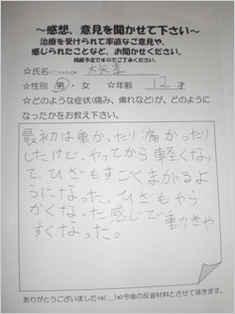 ～感想、意見を聞かせて下さい～
治療を受けられて率直なご意見や、
感じられたことなど、お聞かせください。
掲載予定ですのでご了承ください。
☆氏名
☆性別 男・女 ☆年齢 12才
☆どのような症状(痛み、痺れなど)が、どのように
なったかをお教え下さい。
最初は重かったり痛かったり
したけど、やってから軽くなっ
て、ひざもすごくまがるよ
うになった。ひざもやら
かくなった感じで動きや
すくなった。
ありがとうございましたm(__)m今後の反省材料とさせて頂きます。